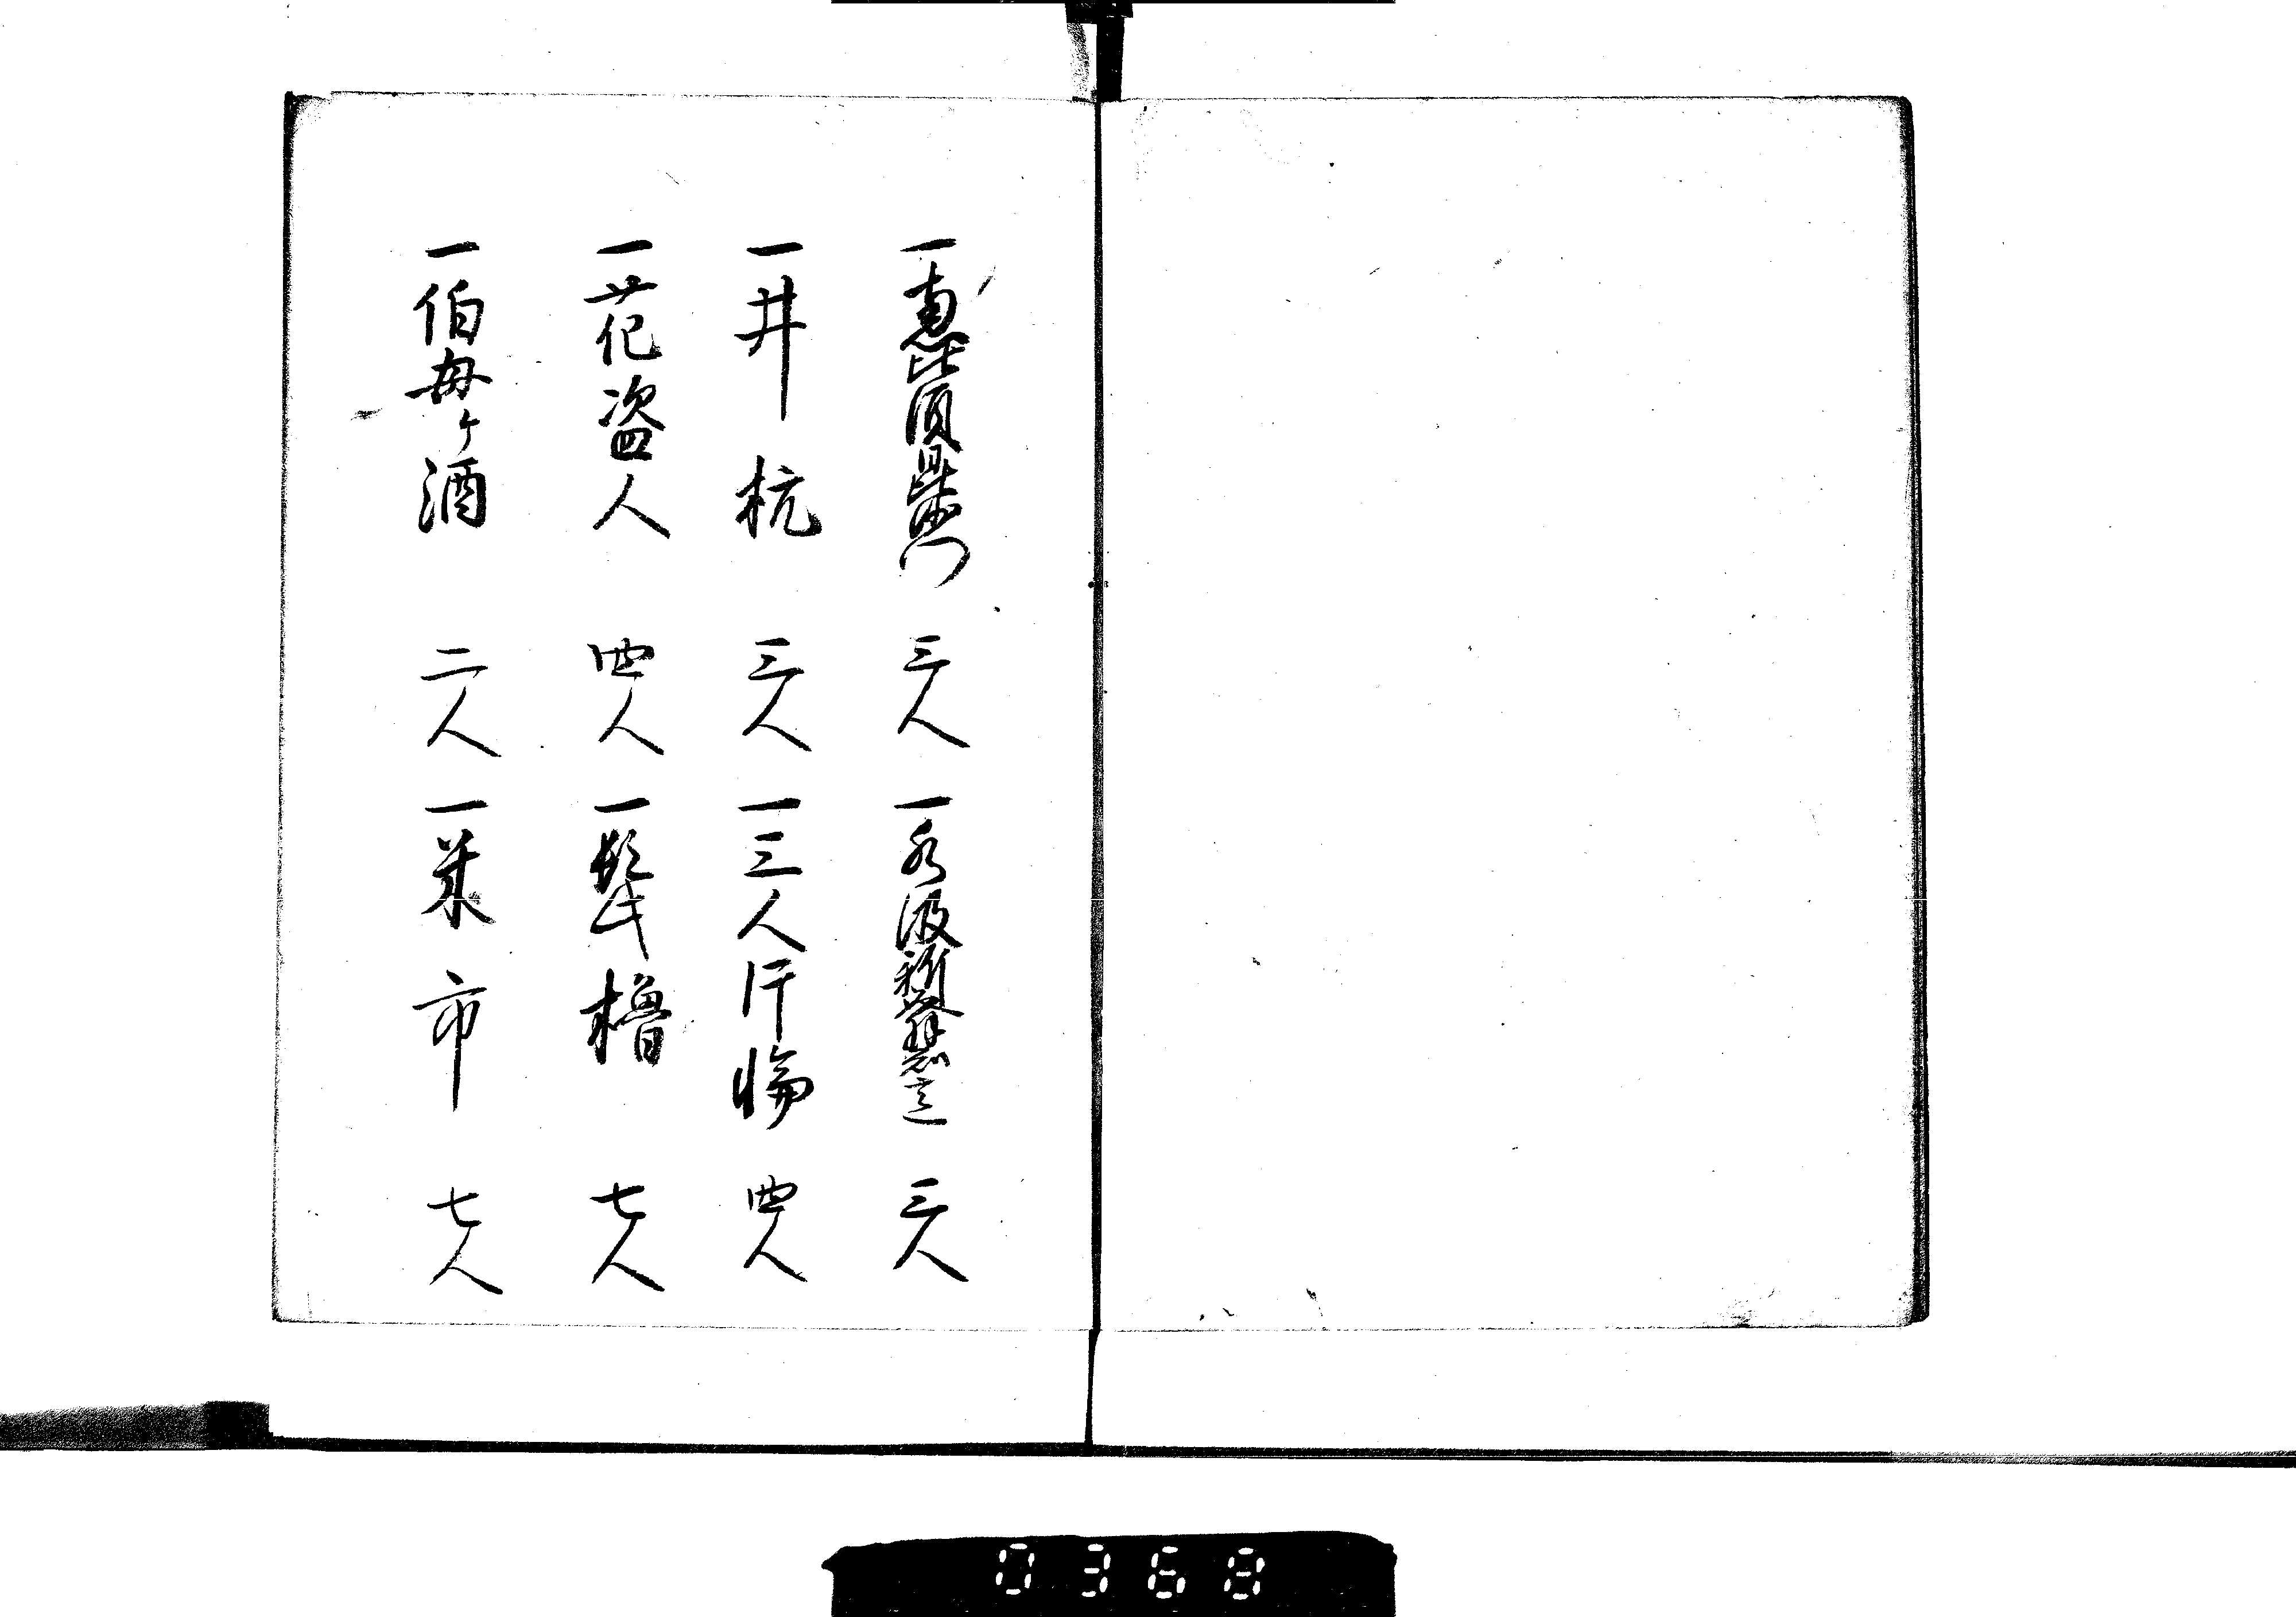 一恵比須毘沙門 三人 一水汲新發意 三人
一井杭 三人 一三人片輪 四人
一花盗人 四人 一髭櫓 七人
一伯母ヶ酒 二人 一米市 七人
0368